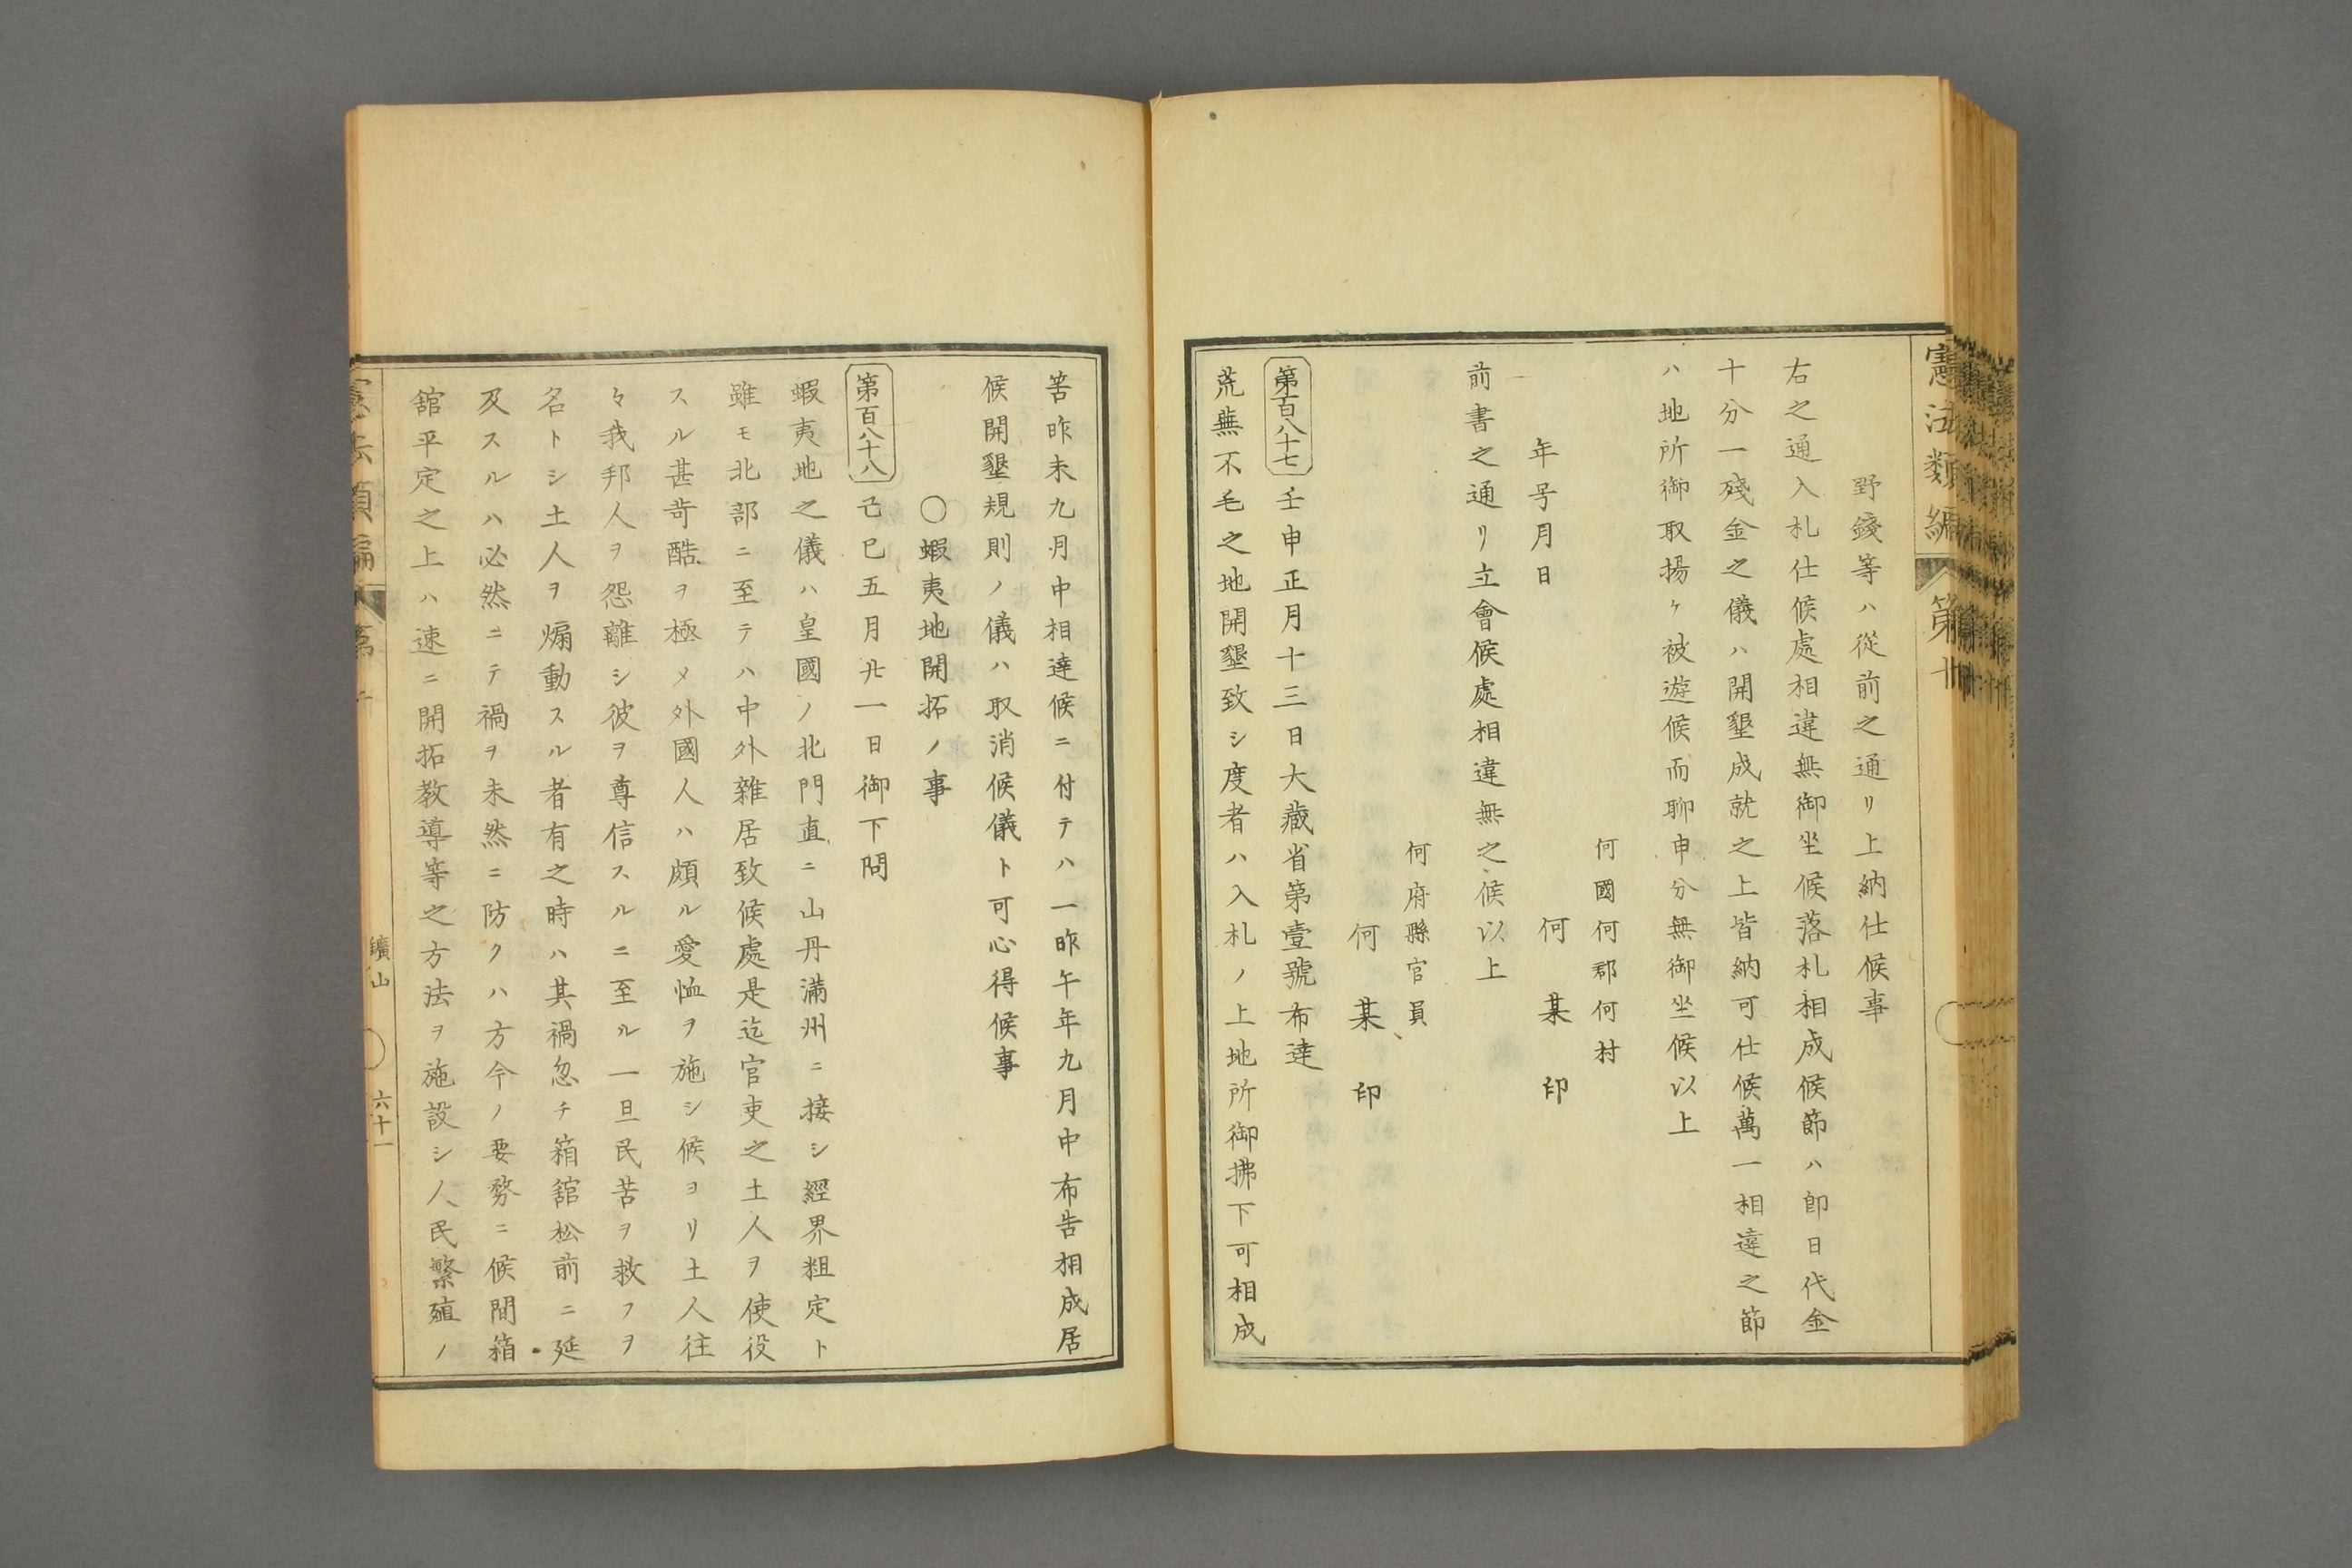 憲法類編
第十
野錢等ハ從前之通リ上納仕候事
右之通入札仕候處相違無御坐候落札相成候節ハ卽日代金
十分一殘金之儀ハ開墾成就之上皆納可仕候萬一相違之節
ハ地所御取揚ヶ被遊候而聊申分無御坐候以上
何國何郡何村
年号月日
何某印
前書之通リ立會候處相違無之候以上
何府縣官員
何某印
第百八十七 壬申正月十三日大藏省第壹號布達
荒蕪不毛之地開墾致シ度者ハ入札ノ上地所御拂下可相成
筈昨未九月中相達候ニ付テハ一昨午年九月中布告相成居
候開墾規則ノ儀ハ取消候儀ト可心得候事
〇蝦夷地開拓ノ事
第百八十八 己巳五月廾一日御下問
蝦夷地之儀ハ皇國ノ北門直ニ山丹滿州ニ接シ經界粗定ト
雖モ北部ニ至テハ中外雜居致候處是迄官吏之土人ヲ使役
スル甚苛酷ヲ極メ外國人ハ頗ル愛恤ヲ施シ候ヨリ土人往
々我邦人ヲ怨離シ彼ヲ尊信スルニ至ル一旦民苦ヲ救フヲ
名トシ土人ヲ煽動スル者有之時ハ其禍忽チ箱舘松前ニ延
及スルハ必然ニテ禍ヲ未然ニ防クハ方今ノ要務ニ候間箱
舘平定之上ハ速ニ開拓敎導等之方法ヲ施設シ人民繁殖ノ
憲法類編
鑛山
六十一